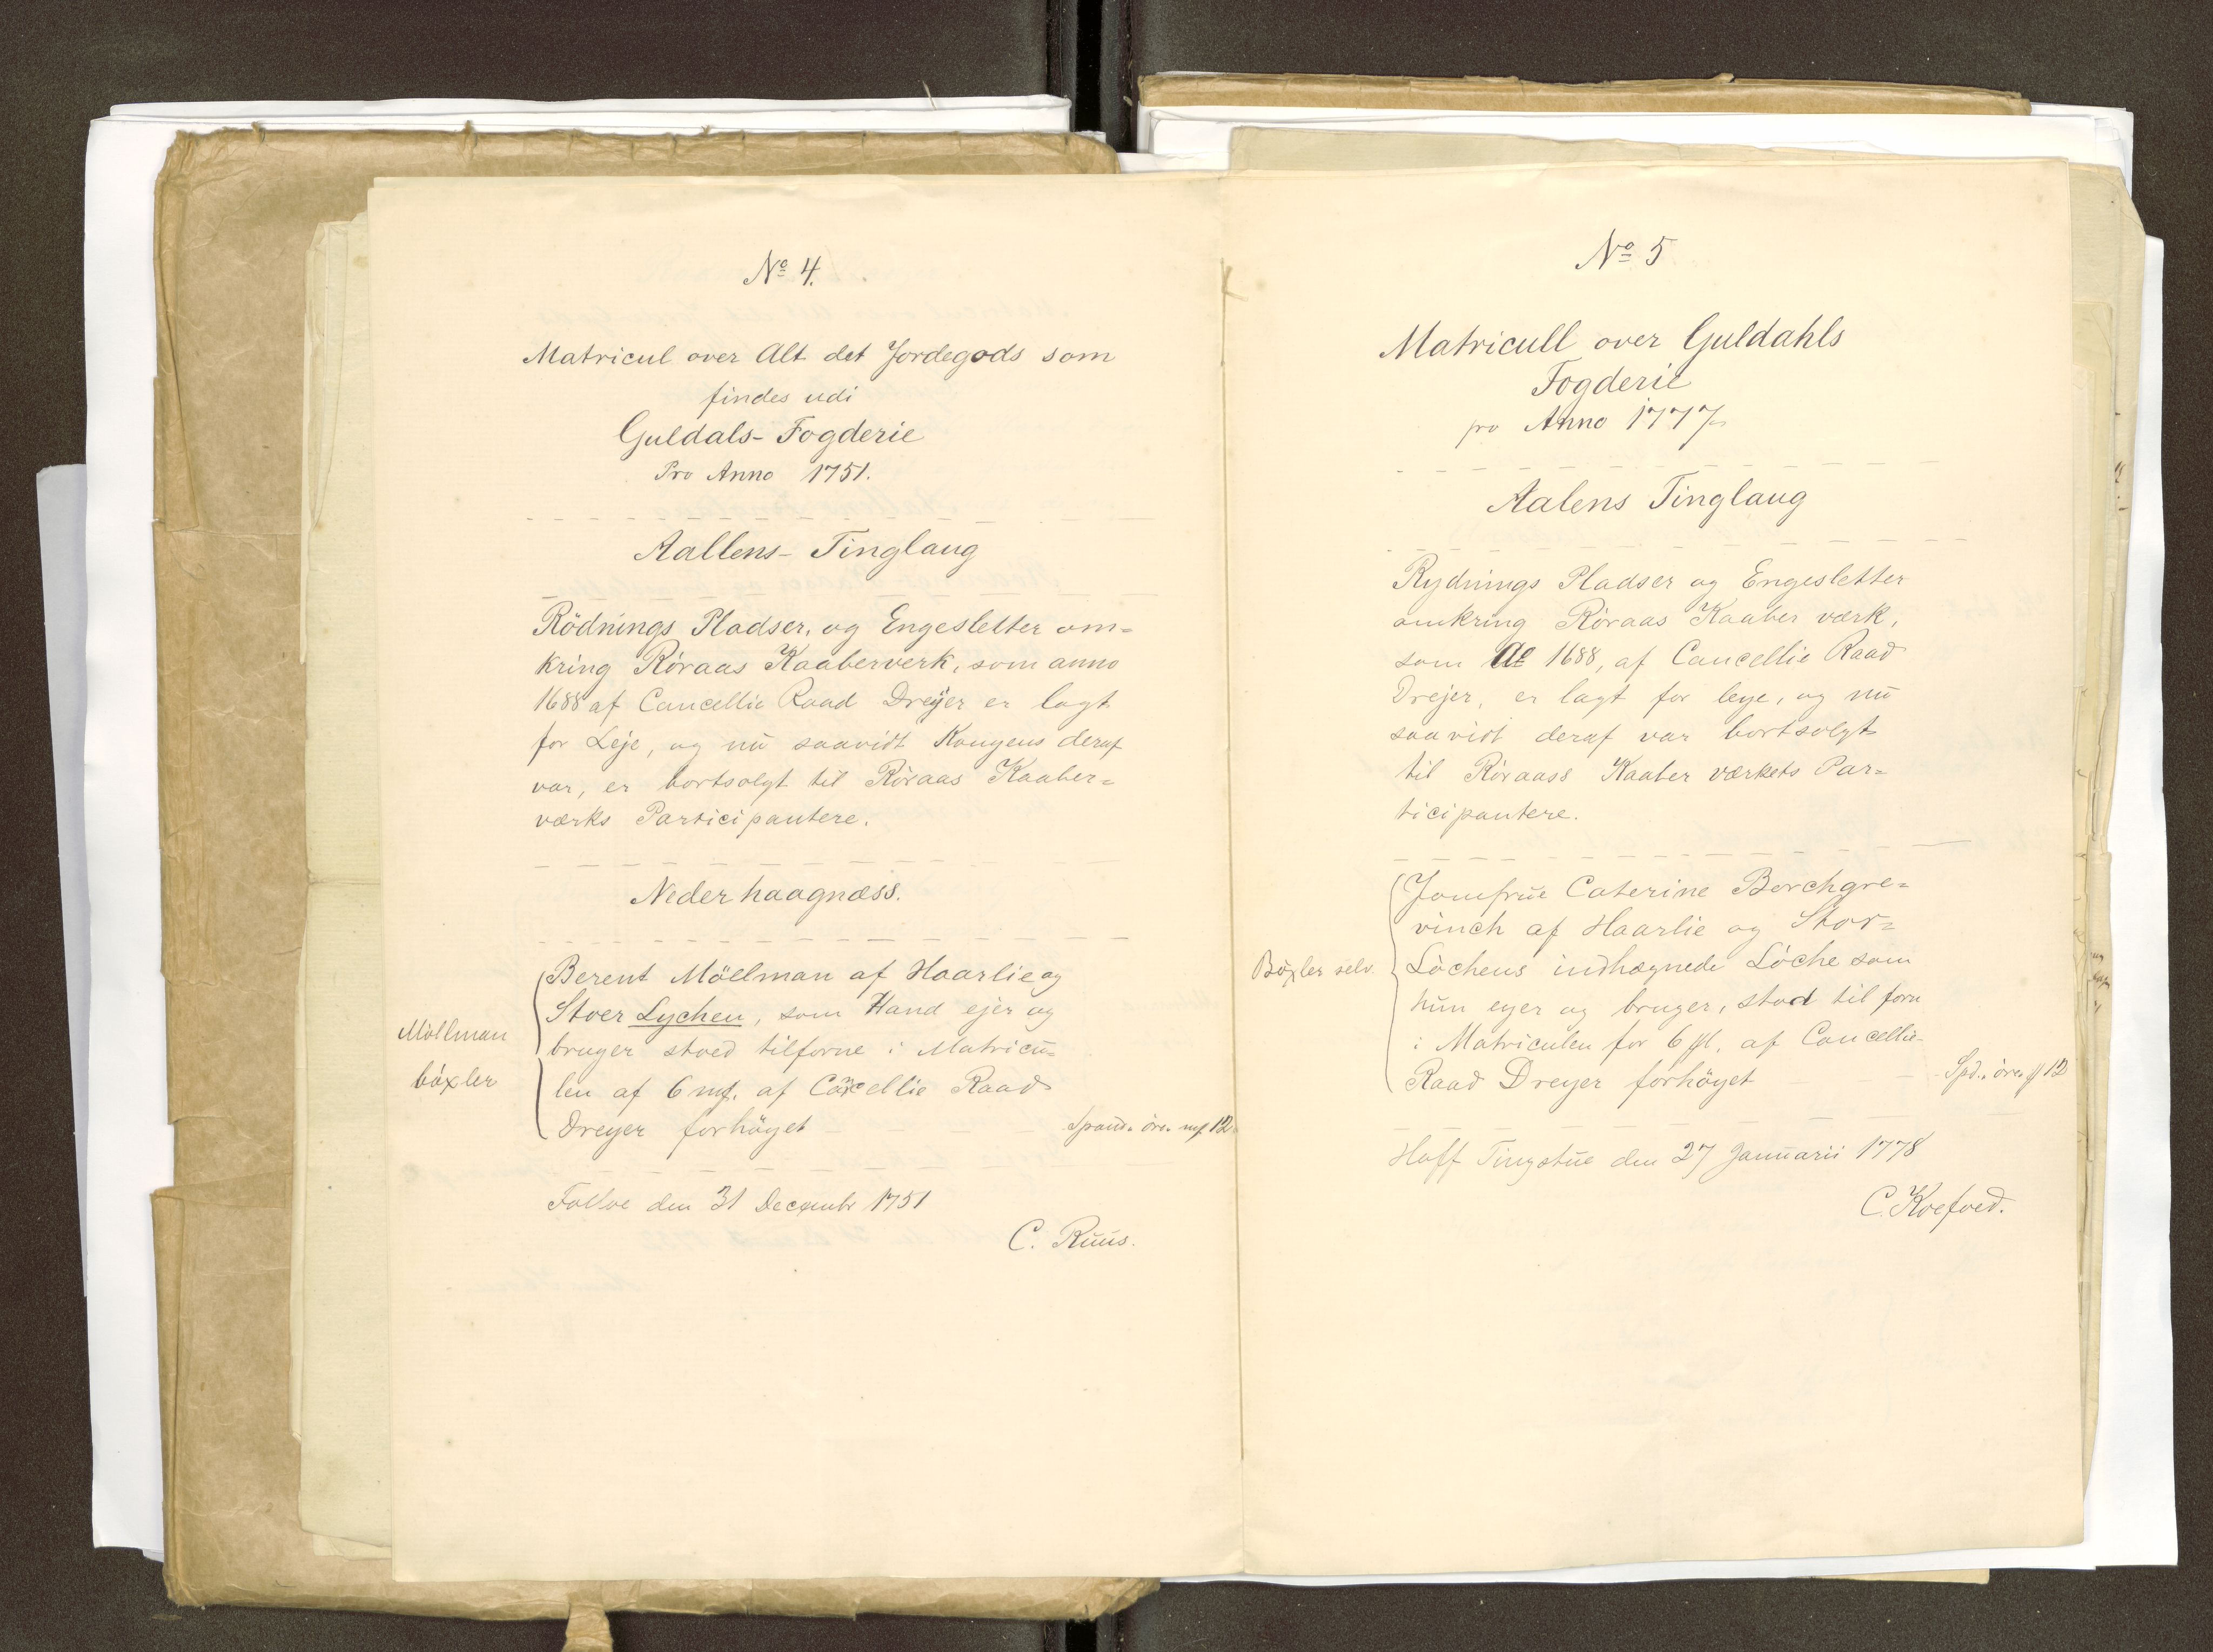 No 4.
Matricul over Alt det Jordegods som
findes udi
Guldals-Fogderie
Pro Anno 1751.
Aallens- Tinglaug
Rödnings Pladser, og Engesletter om=
kring Röraas Kaaberverk, som anno
1688 af Cancellie Raad Dreÿer er lagt
for Leje, og nū saavidt Kongens deraf
var, er bortsolgt til Röraas Kaaber=
værks Participantere.
Neder haagnæss.
Berent Möllman af Haarlie og
Stoer Lychen, som Hand ejer og
bruger stoed tilforne i Matricū=
len af 6 mf. af Cancellie Raad
Dreyer forhöyet Spand " öre " mf. 12
Möllman
böxler
Folloe den 31 Decembr 1751
C. Ruūs.
No 5
Matricull over Guldahls
Fogderie
pro Anno 1777
Aalens Tinglaug
Rydnings Pladser og Engesletter
omkring Röraas Kaaber værk,
som Ao 1688, af Cancellie Raad
Drejer, er lagt for leye, og nū
saavidt deraf var bortsolgt
til Röraass Kaaber værkets Par=
ticipantere.
Jomfrūe Caterine Borchgre=
vinch af Haarlie og Stor=
Böxler selv. Löchens indhægnede Löche som
hūn eyer og bruger, stod til forn
i Matriculen for 6 , af Cancellie
Raad Dreyer forhöyet Spd. " öre " 12
Hoff Tingstūe den 27 Janūarii 1778
C. Koefoed.